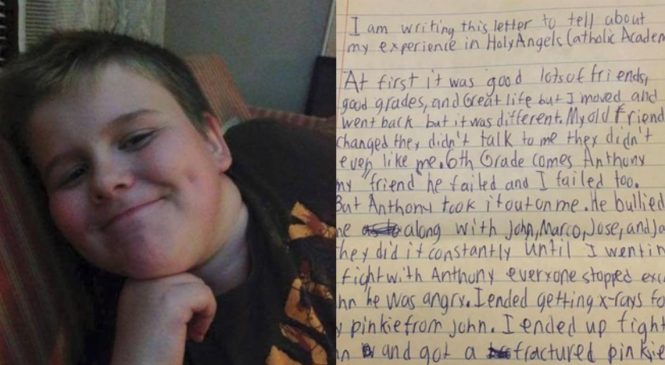 I am writing this letter to tell about
my experience in Holy Angels Catholic Academ
At first it was good lots of friends,
good grades, and Great life but I moved and
went back but it was different. My old friend
changed they didn't talk to me they didn't
even like me. 6th Grade comes Anthony
my "friend" he failed and I failed too.
But Anthony took it out on me. He bullied
me along with John, Marco, Jose, and Ja
they did it constantly until I went in
fight with Anthony everyone stopped exc
he was angry. I ended getting x-rays fo
pinkie from John. I ended up fight
and got a fractured pinkie